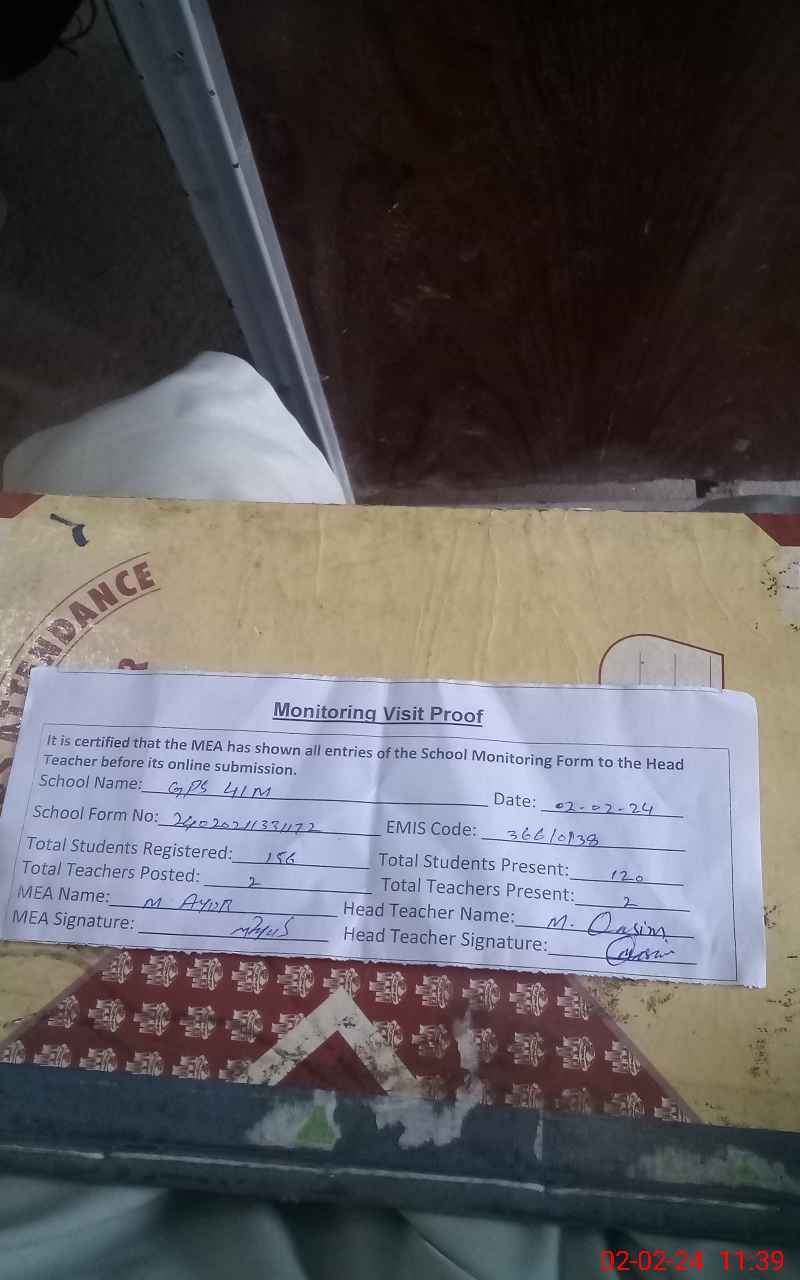 ATTENDANCE
Monitoring Visit Proof
It is certified that the MEA has shown all entries of the School Monitoring Form to the Head
Teacher before its online submission.
School Name: GPS 41M Date: 02-02-24
School Form No: EMIS Code:
Total Students Registered: 156 Total Students Present: 120
Total Teachers Posted: 2 Total Teachers Present: 2
MEA Name: M Head Teacher Name: M. Qasim
MEA Signature: Head Teacher Signature:
02-02-24 11:39